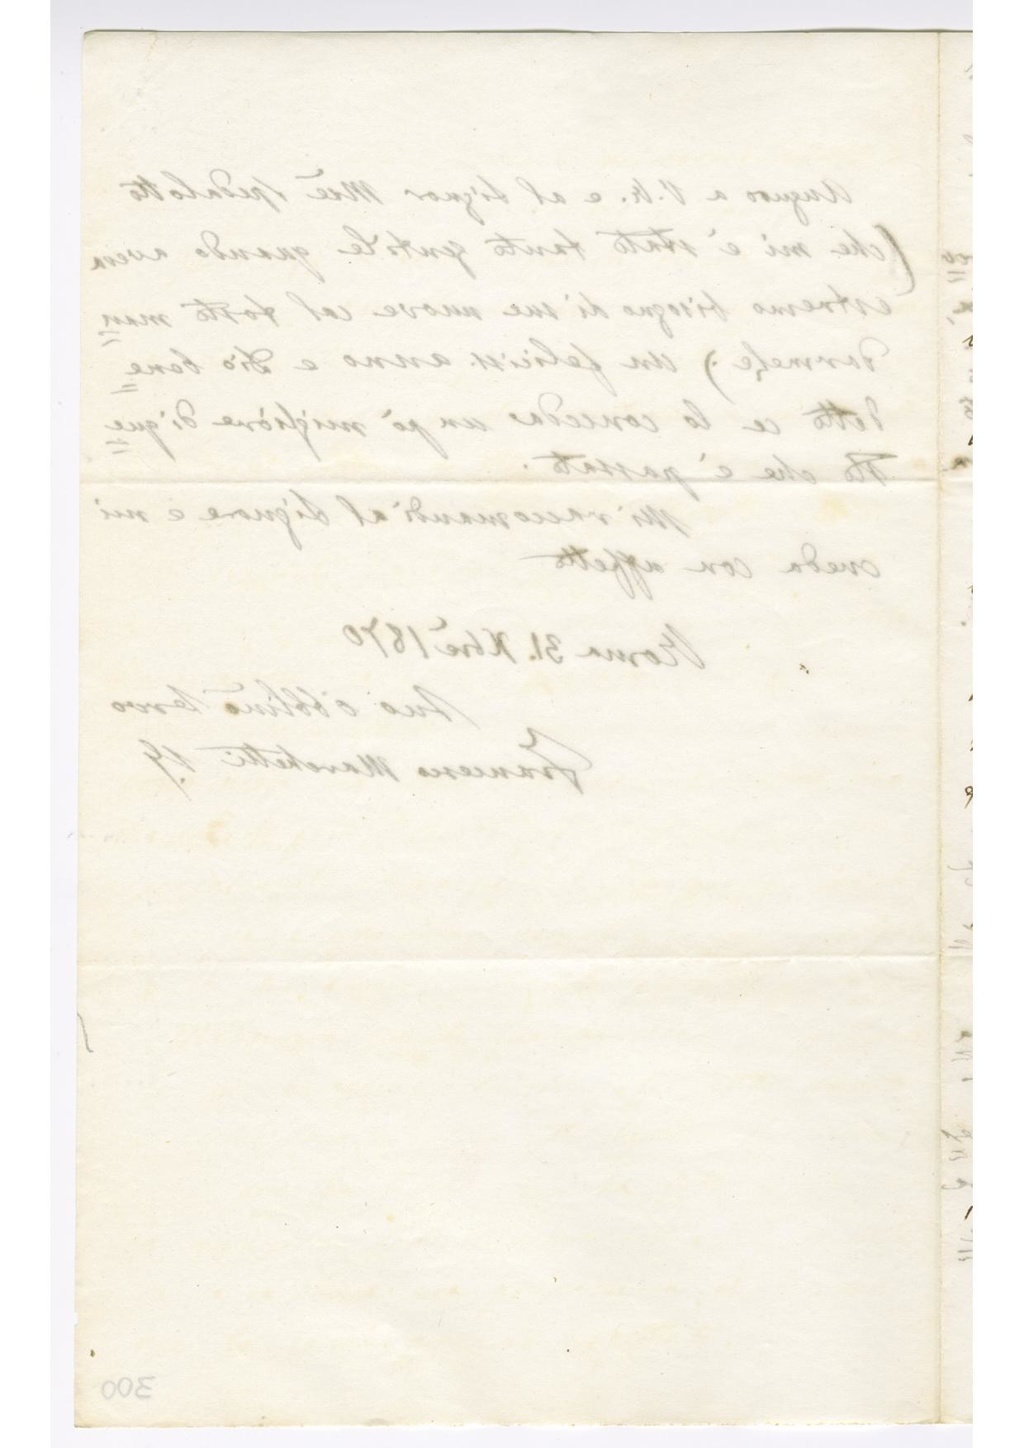 Auguro a V. R. e al Signor Mse Spedalotto
(che mi è stato tanto gentile quando aveva
estremo bisogno di sue nuove col tosto man
darmele) un felicis. anno e Dio bene
detto ce lo conceda un pò migliore di que
sto che è passato.
Mi raccomandi al Signore e mi
creda con affetto
Roma 31. Xbre 1870
Suo obblino servo
Francesco Marchetti
300